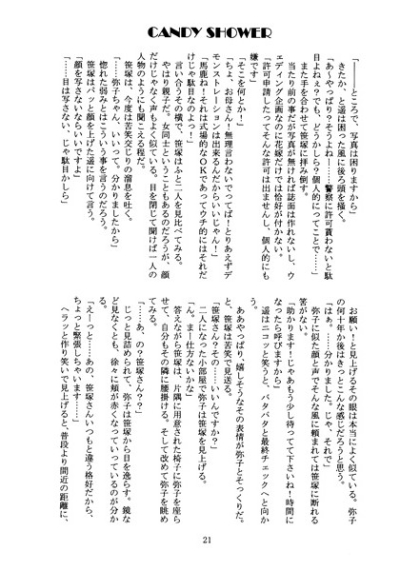 CANDY SHOWER
「――ところで、写真は困りますから」
きたか、と遥は困った風に後ろ頭を掻く。
「あ〜やっぱり？そうよね……警察に許可貰わないと駄
目よねぇ？でも、どうかしら？個人的にってことで……」
また手を合わせて笹塚に拝み倒す。
当たり前の事だが写真が無ければ誌面は作れないし、ウ
ェディング企画なのに花嫁だけでは恰好が付かない。
「許可申請したってそんな許可は出ませんし、個人的にも
嫌です」
「そこを何とか！」
「ちょ、お母さん！無理言わないでってば！とりあえずデ
モンストレーションは出来るんだからいいじゃん！」
「馬鹿ね！それは式場的なＯＫであってウチ的にはそれだ
けじゃ駄目なのよっ！」
言い合うその横で、笹塚はふと二人を見比べてみる。
やはり親子だ、女同士ということもあるのだろうが、顔
だけじゃなく声もよく似ている。目を閉じて聞けば一人の
人物のようにも聞こえる程だ。
笹塚は、今度は苦笑交じりの溜息を吐く。
「……弥子ちゃん、いいって、分かりましたから」
惚れた弱みとはこういう事を言うのだろう。
笹塚はパッと顔を上げた遥に向けて言う。
「顔を写さないならいいですよ」
「……目は写さない、じゃ駄目かしら」
お願い！と見上げるその眼は本当によく似ている。弥子
の何十年か後はきっとこんな感じだろうと思う。
「はぁ。……分かりました。じゃ、それで」
弥子に似た顔と声でそんな風に頼まれては笹塚に断れる
筈がない。
「助かります！じゃあもう少し待ってて下さいね！時間に
なったら呼びますから」
遥はニコッと笑うと、パタパタと最終チェックへと向か
う。
ああやっぱり、嬉しそうなその表情が弥子とそっくりだ。
と、笹塚は苦笑で見送る。
「笹塚さん？その……いいんですか？」
二人になった小部屋で弥子は笹塚を見上げる。
「ん。ま―仕方ないかな」
答えながら笹塚は、片隅に用意された椅子に弥子を座ら
せて、自分もその隣に腰掛ける。そして改めて弥子を眺め
てみる。
「……あ、の？笹塚さん？？」
じっと見詰められて、弥子は笹塚から目を逸らす。鏡な
ど見なくとも、徐々に頬が赤くなっていっているのが分か
る。
「え―っと……あの、笹塚さんいつもと違う格好だから、
ちょっと緊張しちゃいます……」
ヘラッと作り笑いで見上げると、普段より間近の距離に、
21